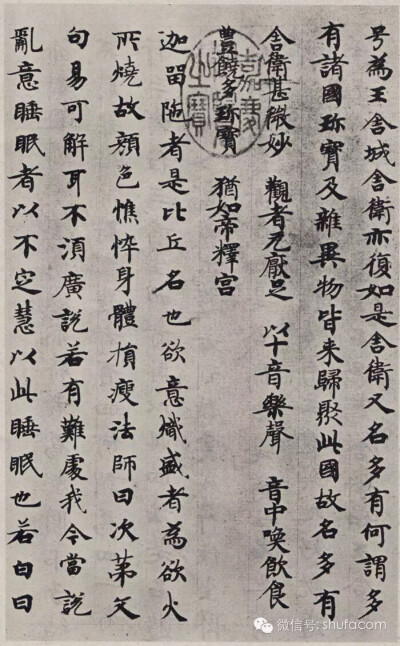 号為王舍城舍衛亦復如是舍衛又名多有何謂多
有諸國珎寶及雜異物皆来歸聚此國故名多有
舍衛甚微妙 觀者无厭足 以十音樂聲 音中喚飲食
豊饒多珎寶 猶如帝釋宫
迦留陁者是比丘名也欲意熾盛者為欲火
所燒故顔色憔悴身體損瘦法師曰次第文
句易可解耳不湏廣說若有難處我今當說
亂意睡眠者以不定慧以此睡眠也若白日
微信号: shufacom